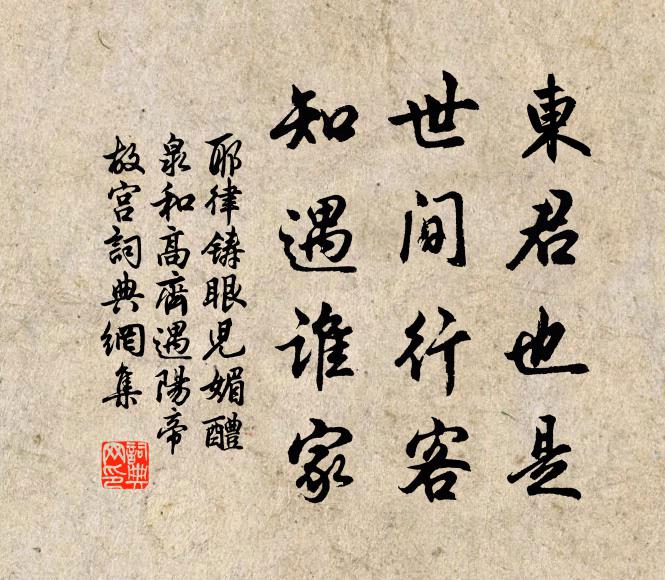 東君也是
世間行客
知遇誰家
耶律鑄眼兒媚醴
泉和高齊遇陽帝
故宮詞典網集
詞典網印